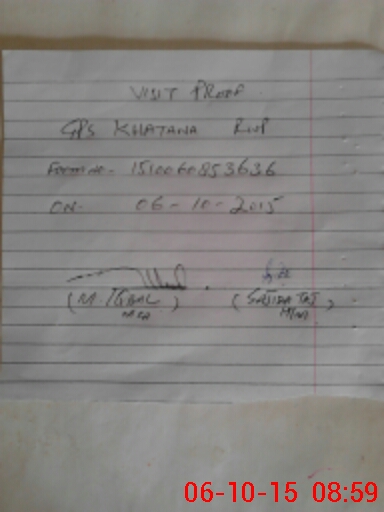 VISIT PROOF
GPS KHATANA RWP
Form no - 151006085 3636
ON - 06 - 10 - 2015
(M. IQBAL)
MEA
(SAJIDA TAJ)
06-10-15 08:59